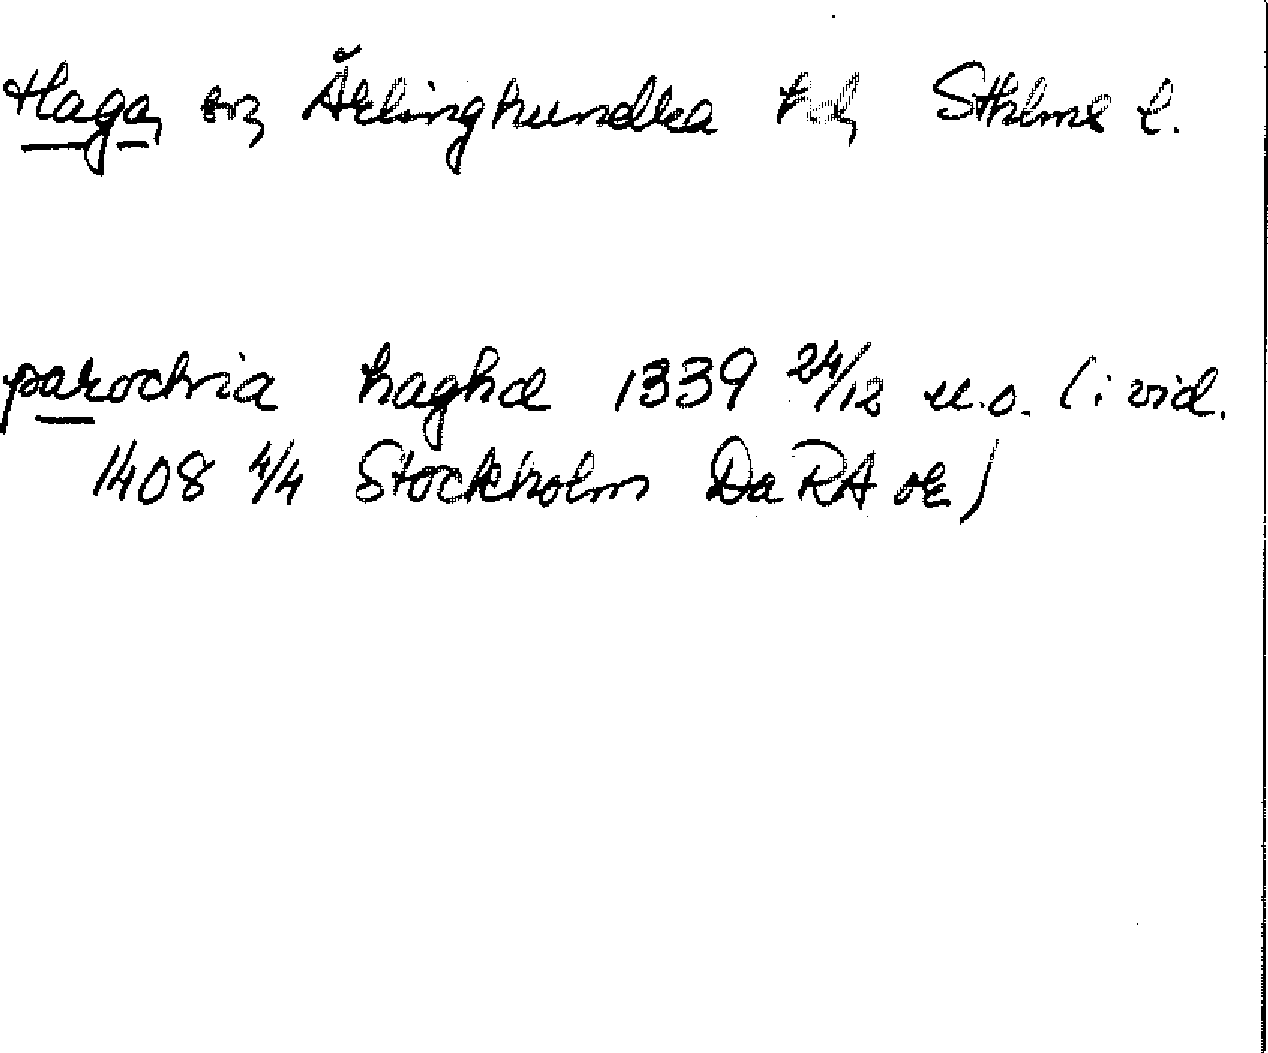 Haga, sn, Ärlinghundra hd, Sthlms l.
parochia haghæ 1339 24/12 u.o. (i vid.
1408 4/4 Stockholm Da RA or)